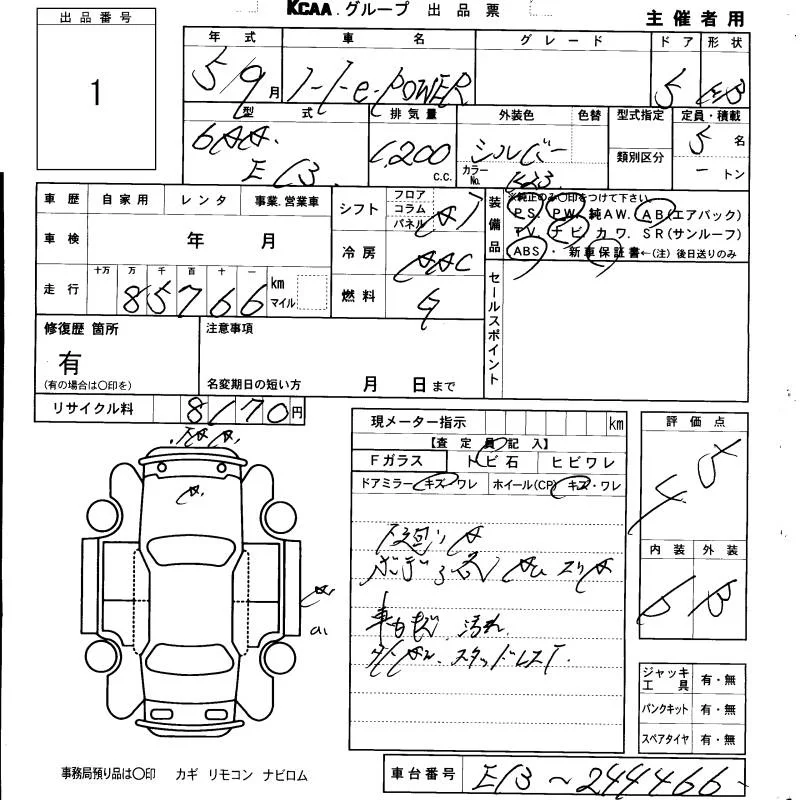 KCAA グループ 出品票
主催者用
出品番号
1
年式 車名 グレード ドア 形状
5/9月 ノート e-POWER 5
型式 排気量 外装色 色替 型式指定 定員・積載
6AA- 1,200 シルバー 5名
E13 c.c. カラーNo. K23 類別区分 ートン
車歴 自家用 レンタ 事業.営業車
シフト フロア コラム パネル
装備品
※純正のみ〇印をつけて下さい。
P.S. P.W. 純A.W. A.B(エアバック)
T.V. ナビ カワ. S.R(サンルーフ)
ABS・新車保証書←(注)後日送りのみ
車検 年 月
冷房 AAC
走行 十万 万 千 百 十 一
85766 km マイル
燃料
セールスポイント
修復歴 箇所
有
(有の場合は〇印を)
注意事項
名変期日の短い方 月 日まで
リサイクル料 8170円
現メーター指示 km
【査定員記入】
Fガラス トビ石 ヒビワレ
ドアミラー キズ・ワレ ホイール(CP) キズ・ワレ
下廻りA
ボデー各 スリA
車内 汚れ
スタッドレスT.
評価点
4.5
内装 外装
B
ジャッキ 工具 有・無
パンクキット 有・無
スペアタイヤ 有・無
事務局預り品は〇印 カギ リモコン ナビロム
車台番号 E13-244466